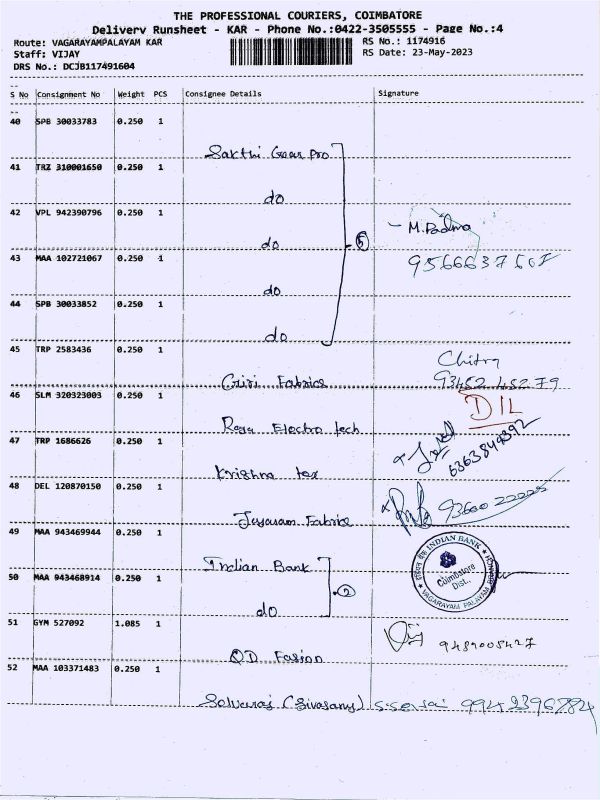 THE PROFESSIONAL COURIERS, COIMBATORE
Delivery Runsheet - KAR - Phone No.:0422-3505555 - Page No.:4
Route: VAGARAYAMPALAYAM KAR
RS No.: 1174916
Staff: VIJAY
RS Date: 23-May-2023
DRS No.: DCJB117491604
S No Consignment No Weight PCS Consignee Details Signature
40 SPB 30033783 0.250 1
Sakthi Gear Pro
41 TRZ 310001650 0.250 1
do
42 VPL 942390796 0.250 1
M. Padma
do
5
43 MAA 102721067 0.250 1
do
44 SPB 30033852 0.250 1
do
45 TRP 2583436 0.250 1
Chitra
Giri Fabrics 93452 45279
46 SLM 320323003 0.250 1
DIL
Electro tech
47 TRP 1686626 0.250 1
6363849392
Krishna tex
48 DEL 120870150 0.250 1
93600 22225
Jayaram Fabrics
49 MAA 943469944 0.250 1
INDIAN BANK
Indian Bank
50 MAA 943468914 0.250 1
2
Coimbatore
Dist.,
VAGARAYAM PALAYAM BRANCH
do
51 GYM 527092 1.085 1
9489005427
52 MAA 103371483 0.250 1
Selvaraj 9942396784